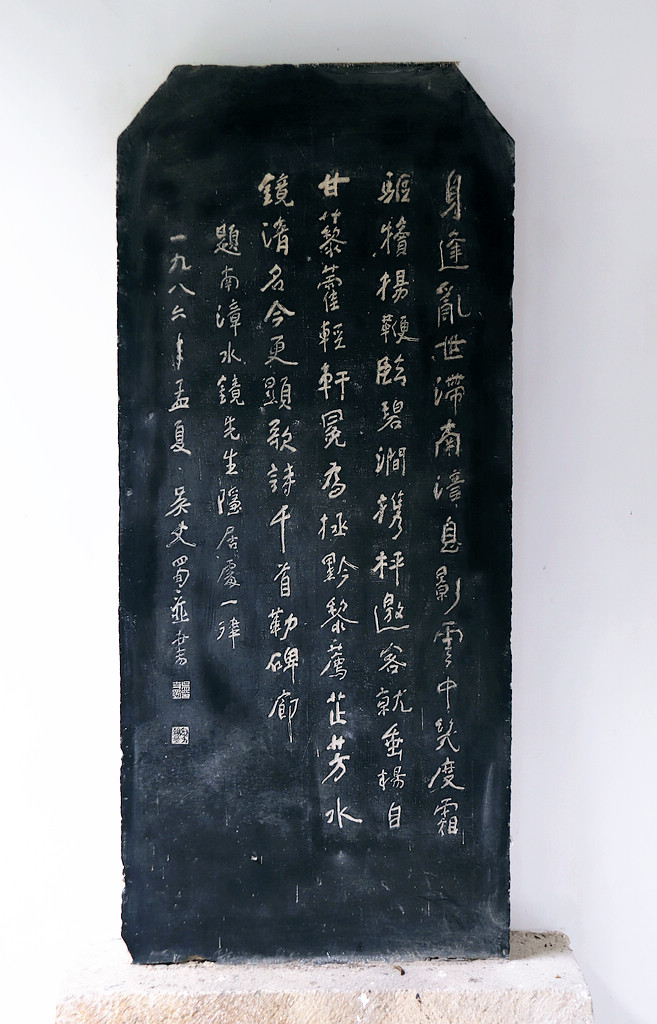 身逢亂世滯南漳息影雲中幾度霜
驅犢揚鞭臨碧澗携枰邀客就垂楊自
甘藜藿輕軒冕為拯黔黎薦芷芳水
鏡清名今更顯歌詩千首勒碑廊
題南漳水鏡先生隱居處一律
一九八六年孟夏吳丈蜀並書